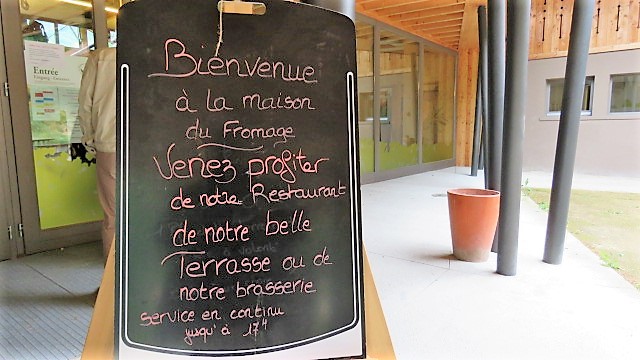 Entrée
Bienvenue
à la maison
du Fromage
Venez profiter
de notre Restaurant
de notre belle
Terrasse ou de
notre brasserie
service en continu
jusqu'à 17H